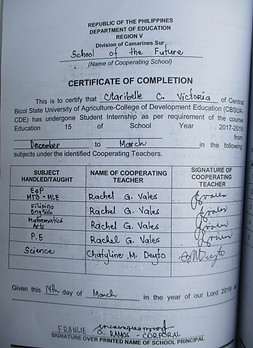 REPUBLIC OF THE PHILIPPINES
DEPARTMENT OF EDUCATION
REGION V
Division of Camarines Sur
School of the Future
(Name of Cooperating School)
CERTIFICATE OF COMPLETION
This is to certify that Claribelle C. Victoria of Central
Bicol State University of Agriculture-College of Development Education (CBSUA-
CDE) has undergone Student Internship as per requirement of the course
Education 15 of School Year 2017-2018 from
December to March in the following
subjects under the identified Cooperating Teachers.
SUBJECT HANDLED/TAUGHT
NAME OF COOPERATING TEACHER
SIGNATURE OF COOPERATING TEACHER
EsP
MTB - MLE Rachel G. Vales
Filipino
English Rachel G. Vales
Mathematics
Arts Rachel G. Vales
P.E Rachel G. Vales
Science M.
Given this 14th day of March in the year of our Lord 2018
FRANCIE RAMOS - CORPORAL
SIGNATURE OVER PRINTED NAME OF SCHOOL PRINCIPAL